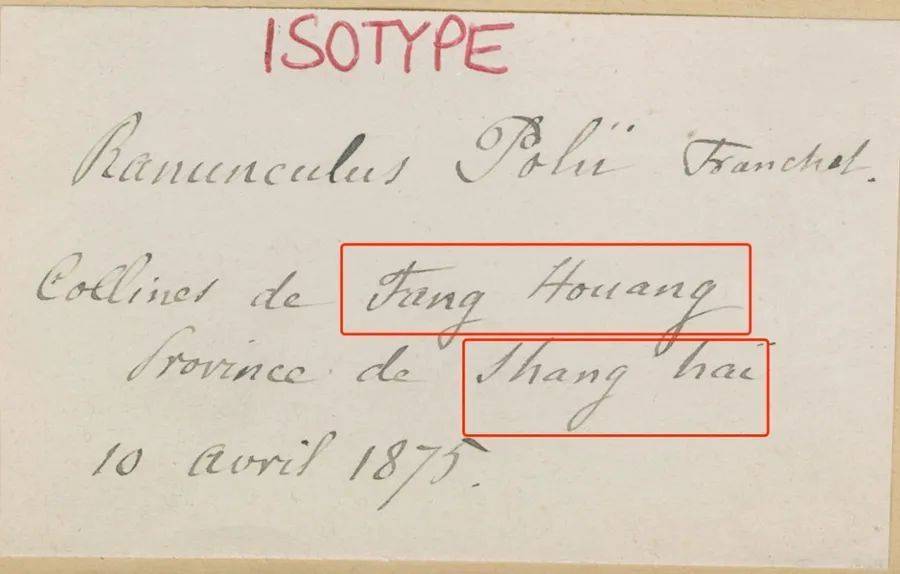 ISOTYPE
Ranunculus Polii Franchet.
Collines de Fang Houang
Province de Shang haï
10 avril 1875.